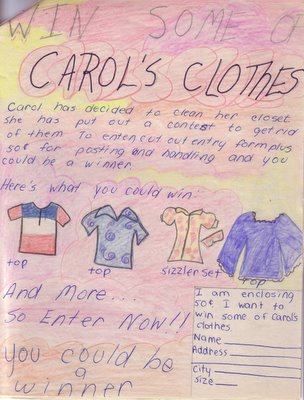 WIN SOME O
CAROL'S CLOTHES
Carol has decided to clean her closet
she has put out a contest to get rid
of them. To enter cut out entry form plus
50¢ for posting and handling and you
could be a winner.
Here's what you could win:
top
top
sizzler set
top
And More...
So Enter Now!!
You could be
a
winner
I am enclosing
50¢ I want to
win some of Carol's
clothes
Name
Address
City
size